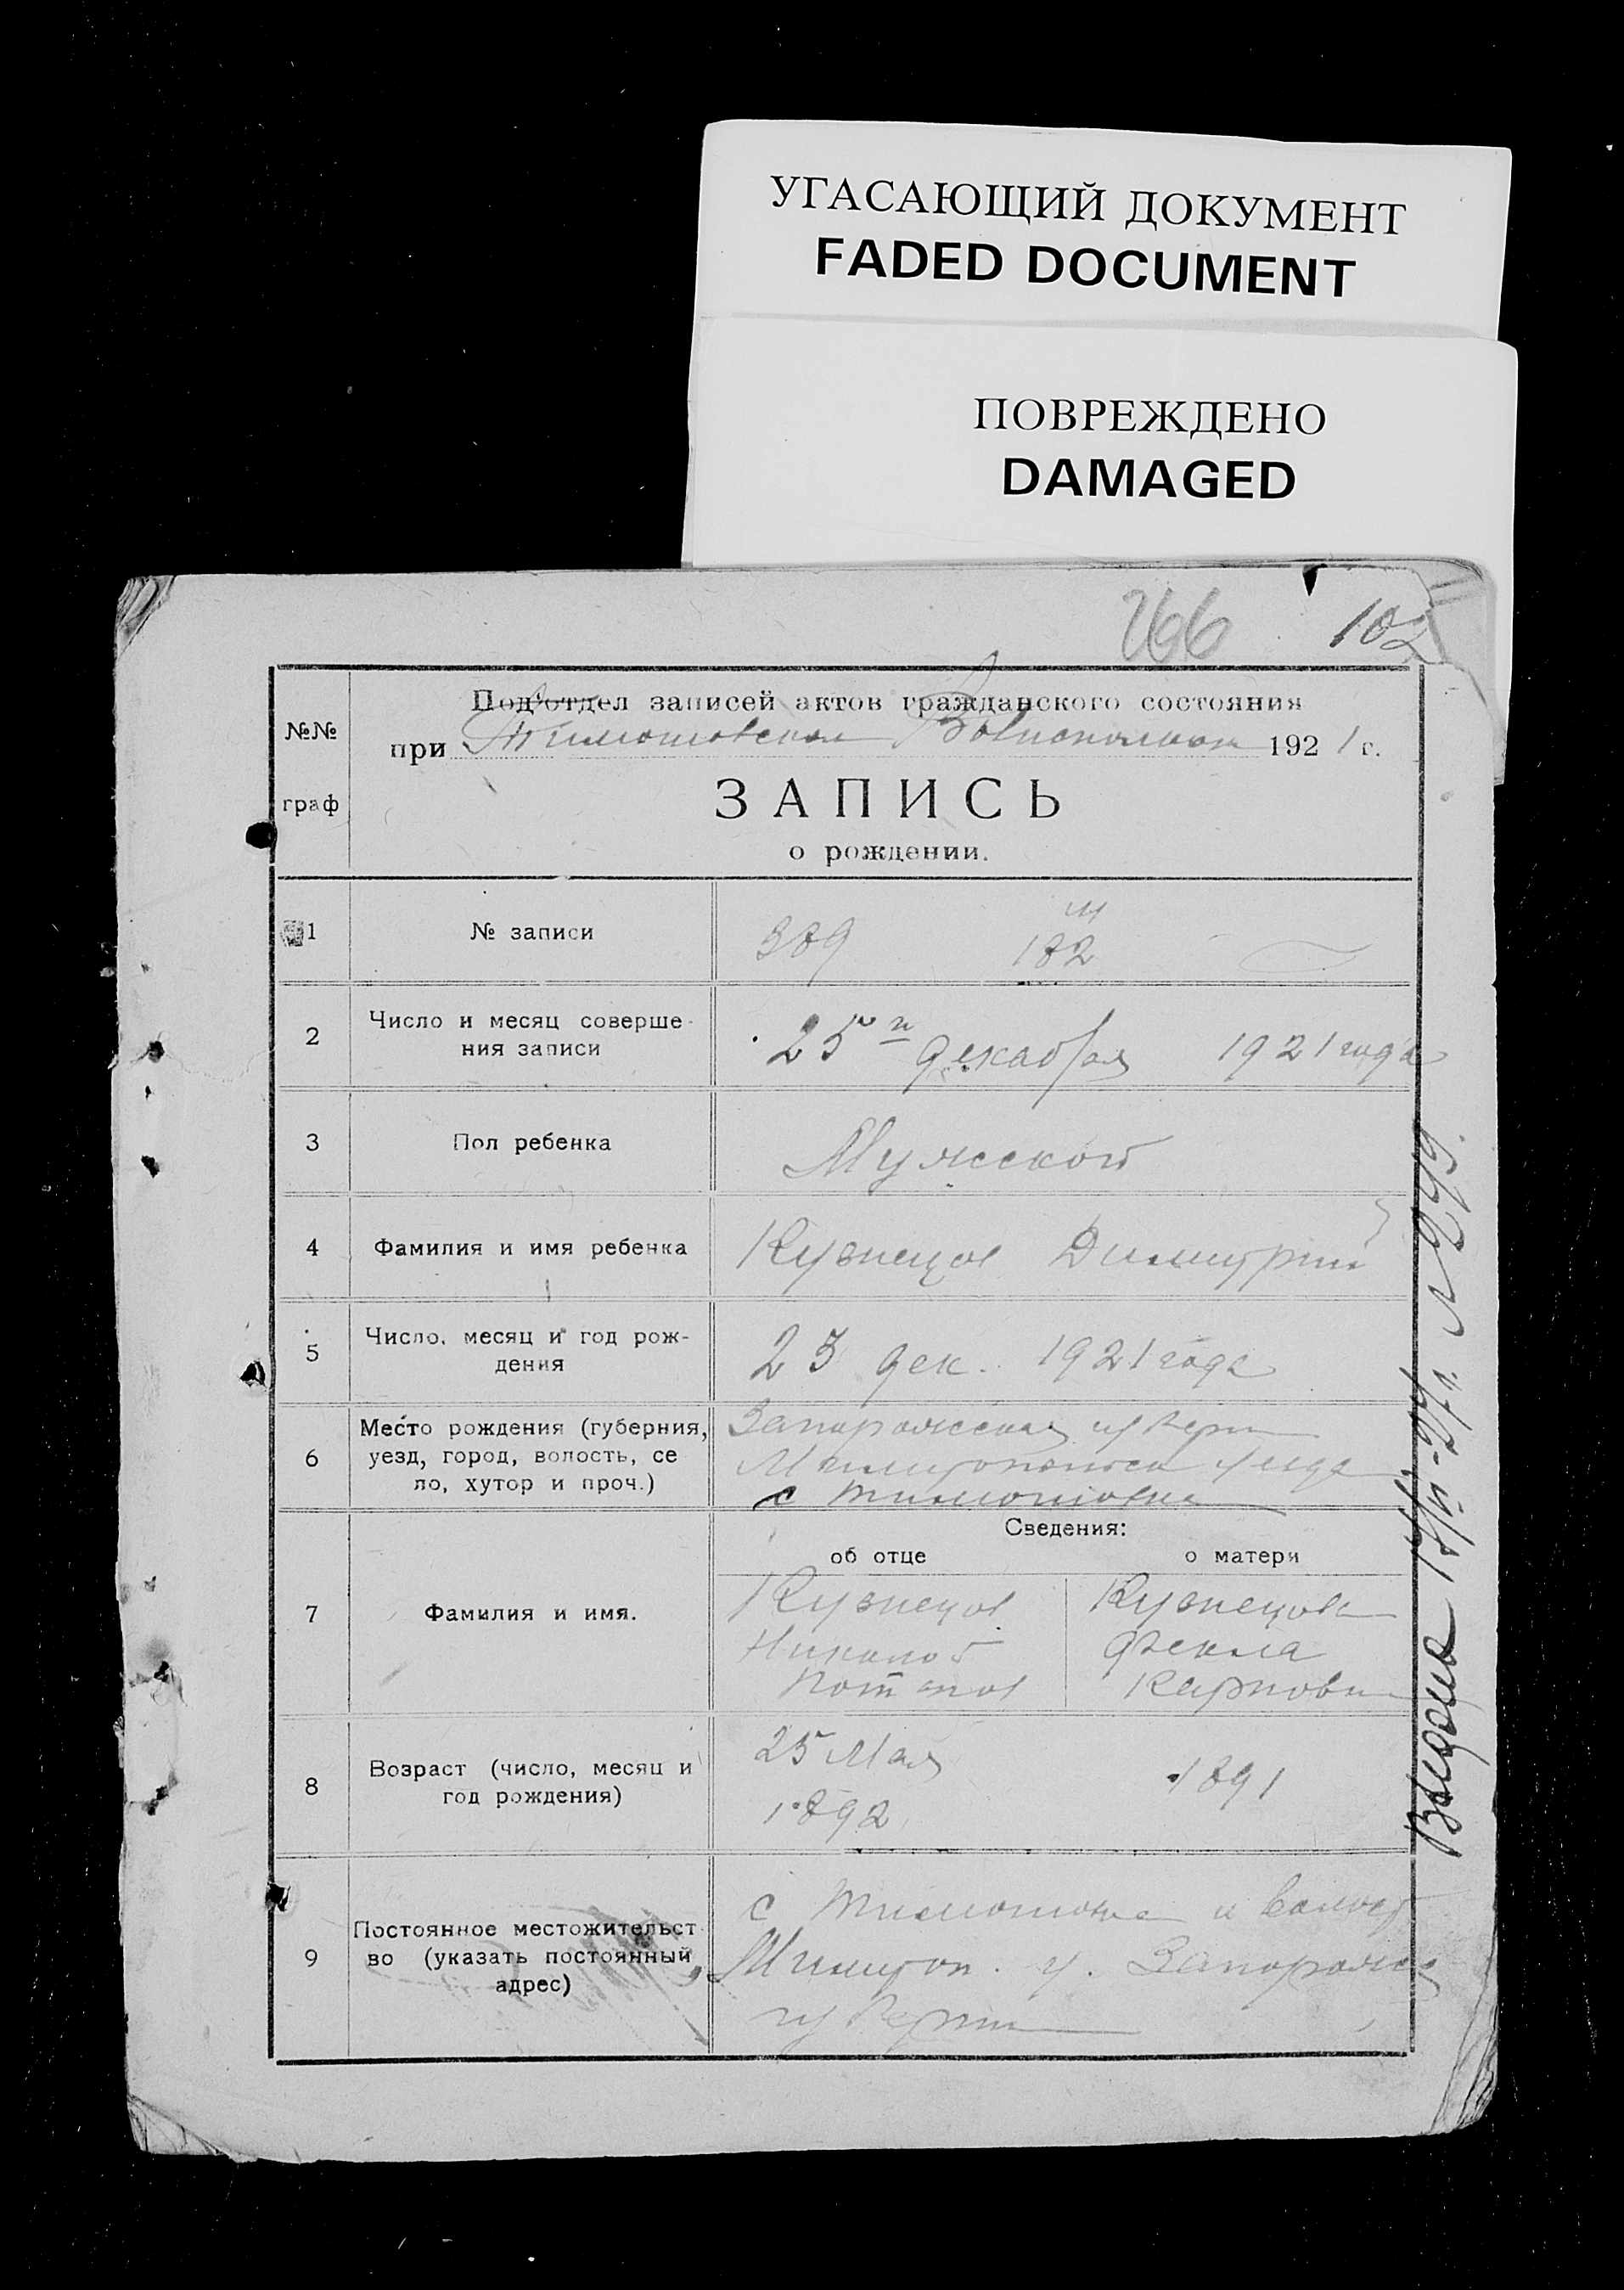 УГАСАЮЩИЙ ДОКУМЕНТ
FADED DOCUMENT
ПОВРЕЖДЕНО
DAMAGED
266 102
Под'отдел записей актов гражданского состояния
№№
при Тимошовском 1921 г.
граф
ЗАПИСЬ
о рождении.
1 № записи 389 м
182
2 Число и месяц соверше-
ния записи
25 декабря 1921 года
3 Пол ребенка Мужской
4 Фамилия и имя ребенка Кузнецов Димитрий
5 Число, месяц и год рож-
дения
дек. 1921 года
6 Место рождения (губерния,
уезд, город, волость, се
ло, хутор и проч.)
Запорожская губерн
уезда
с Тимошовка
Сведения:
об отце о матери
7 Фамилия и имя.
Кузнецов Кузнецова
Николай Фекла
Карповна
8 Возраст (число, месяц и
год рождения)
25 Мая
1892
1891
9 Постоянное местожительст
во (указать постоянный
адрес)
с Тимошовка и волост
у. Запорожск
губерни